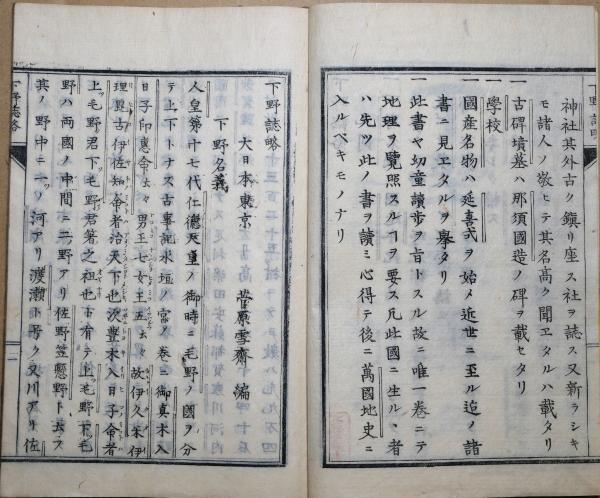 神社其外古ク鎮リ座ス社ヲ誌ス又新ラシキ
モ諸人ノ敬ヒテ其名高ク聞エタルハ載タリ
一 古碑墳墓ハ那須國造ノ碑ヲ載セタリ
一 學校
一 國産名物ハ延喜式ヲ始メ近世ニ至ル迠ノ諸
書ニ見エタルヲ擧タリ
一 此書ヤ幼童讀步ヲ旨トスル故ニ唯一巻ニテ
地理ヲ覽照スルヿヲ要ス凡此國ニ生ルヽ者
ハ先ツ此ノ書ヲ讀ミ心得テ後ニ萬國地史ニ
入ルベキモノナリ
下野誌略
大日本東京 菅原雪齋 編
下野名義
人皇第十七代仁德天皇ノ御時ニ毛野ノ國ヲ分
テ上下トナス古事記水垣ノ宮ノ巻ニ御真木入
日子印惠命云々男王七女王五云々故伊久米伊
理毘古伊佐知命者治天下也次豊木入日子命者
上毛野君下毛野君等之祖也ト有テ上毛野下毛
野ハ両國ノ中間ニ二野アリ佐野笠懸野ト云フ
其ノ野中ニ一ツノ河アリ渡瀬ト号ク又川アリ佐
下野誌略